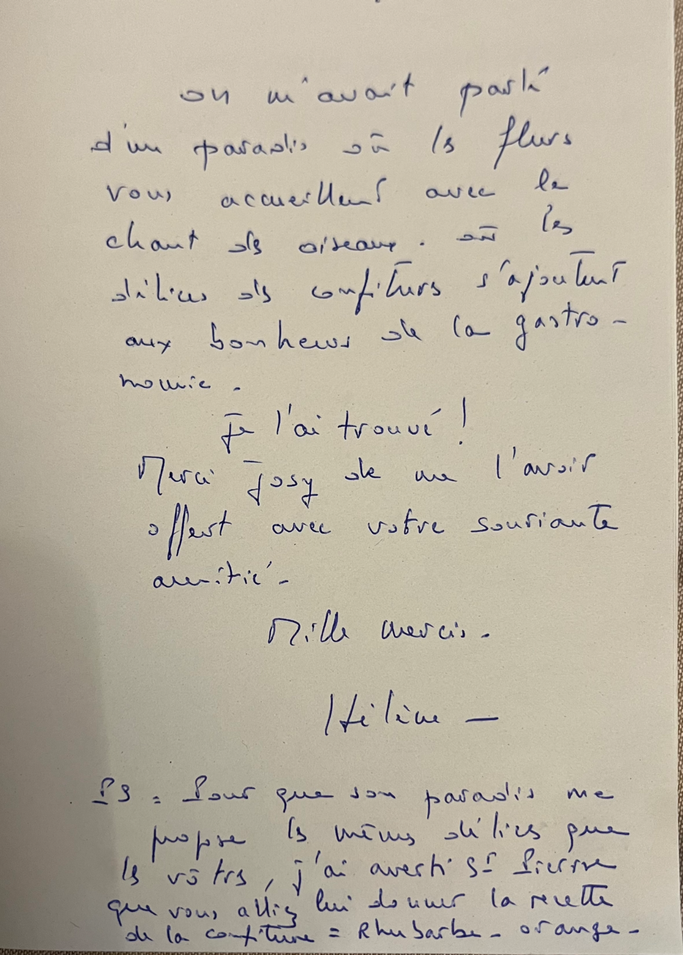 on m'avait parlé
d'un paradis où les fleurs
vous accueillent avec le
chant des oiseaux. où les
délices des confitures s'ajoutent
aux bonheurs de la gastro-
nomie.
je l'ai trouvé !
Merci Josy de me l'avoir
offert avec votre souriante
amitié.
Mille mercis.
Hélène —
PS = Pour que son paradis me
propose les mêmes délices que
les vôtres, j'ai averti St Pierre
que vous alliez lui donner la recette
de la confiture = Rhubarbe - orange -